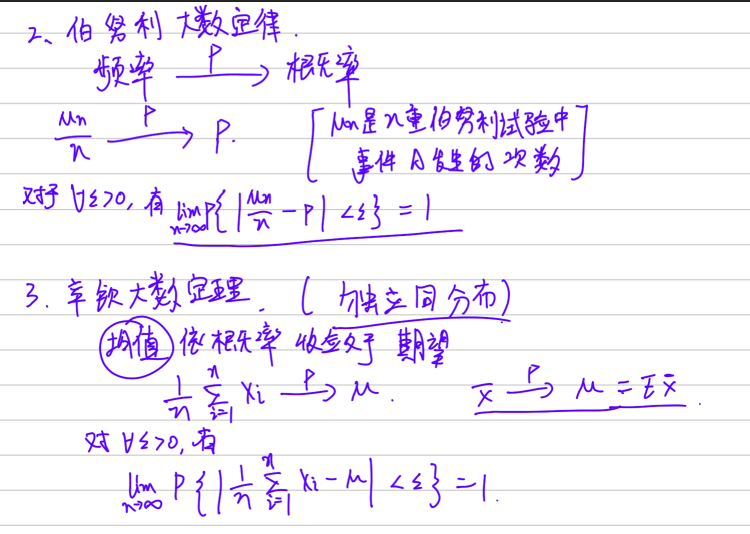 2、伯努利大数定律.
频率 P→ 概率
μn/n P→ P. [μn是n重伯努利试验中
事件A发生的次数]
对于∀ε>0,有 lim n→∞ P{|μn/n - P|<ε}=1
3.辛钦大数定理.(独立同分布)
均值依概率收敛于期望
1/n ∑ i=1 n Xi P→ μ. x̄ P→ μ = E x̄.
对∀ε>0,有
lim n→∞ P{|1/n ∑ i=1 n Xi - μ|<ε}=1.